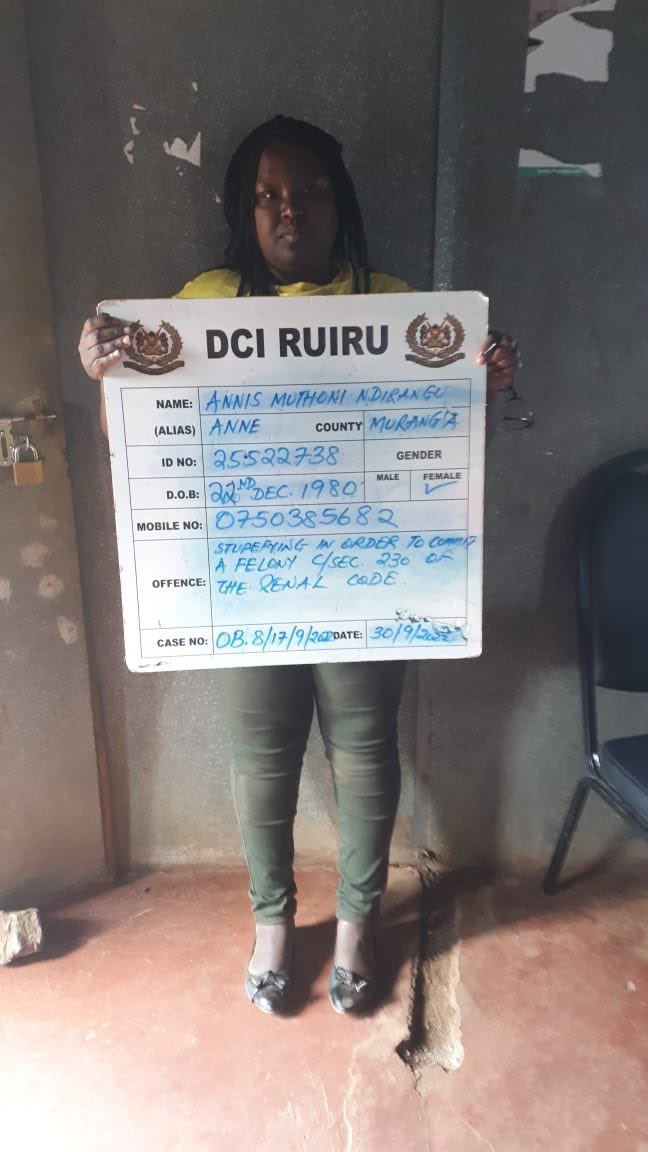 DCI RUIRU
NAME: ANNIS MUTHONI NDIRANGU
(ALIAS) ANNE COUNTY MURANG'A
ID NO: 25522738 GENDER
MALE FEMALE ✓
D.O.B: 22ND DEC. 1980
MOBILE NO: 0750385682
OFFENCE: STUPEFYING IN ORDER TO COMMIT
A FELONY C/SEC. 230 OF
THE PENAL CODE.
CASE NO: OB. 8/17/9/2022 DATE: 30/9/2022